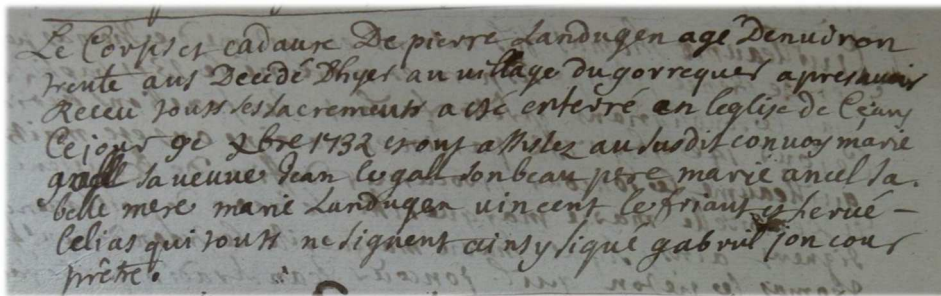 Le Corps et cadavre De pierre Landugen agé Denviron
trente ans Decedé Dhyer au village du gorrequer apres avoir
Receu touts les sacrements a eté enterré en leglise de Ceans
Ce jour 9e xbre 1732 et ont assistez au susdit convoy marie
gall sa veuve Jean le gall son beau pere marie ancel sa
belle mere marie Landugen vincent le friant et hervé
Celias qui touts ne signent ainsy signé gabriel joncour
prêtre.